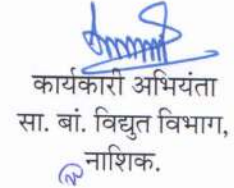 कार्यकारी अभियंता
सा. बां. विद्युत विभाग,
नाशिक.